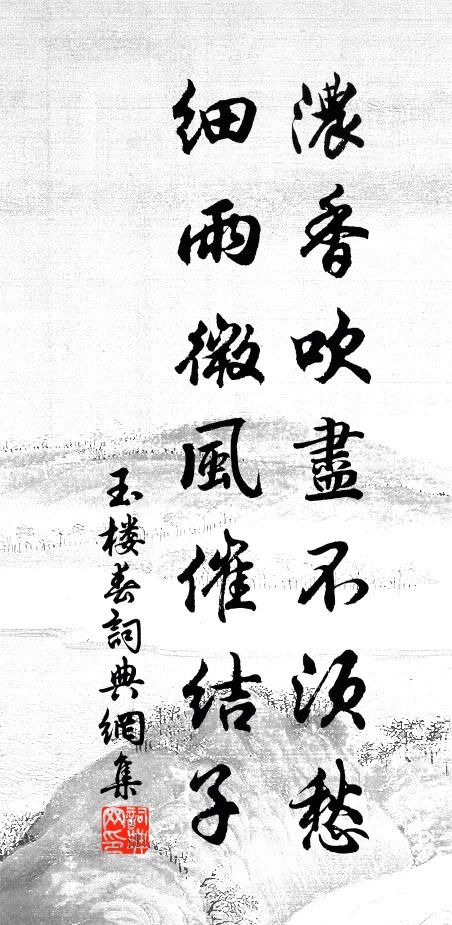 濃香吹盡不須愁
細雨微風催結子
玉楼春詞典網集
詞典网印